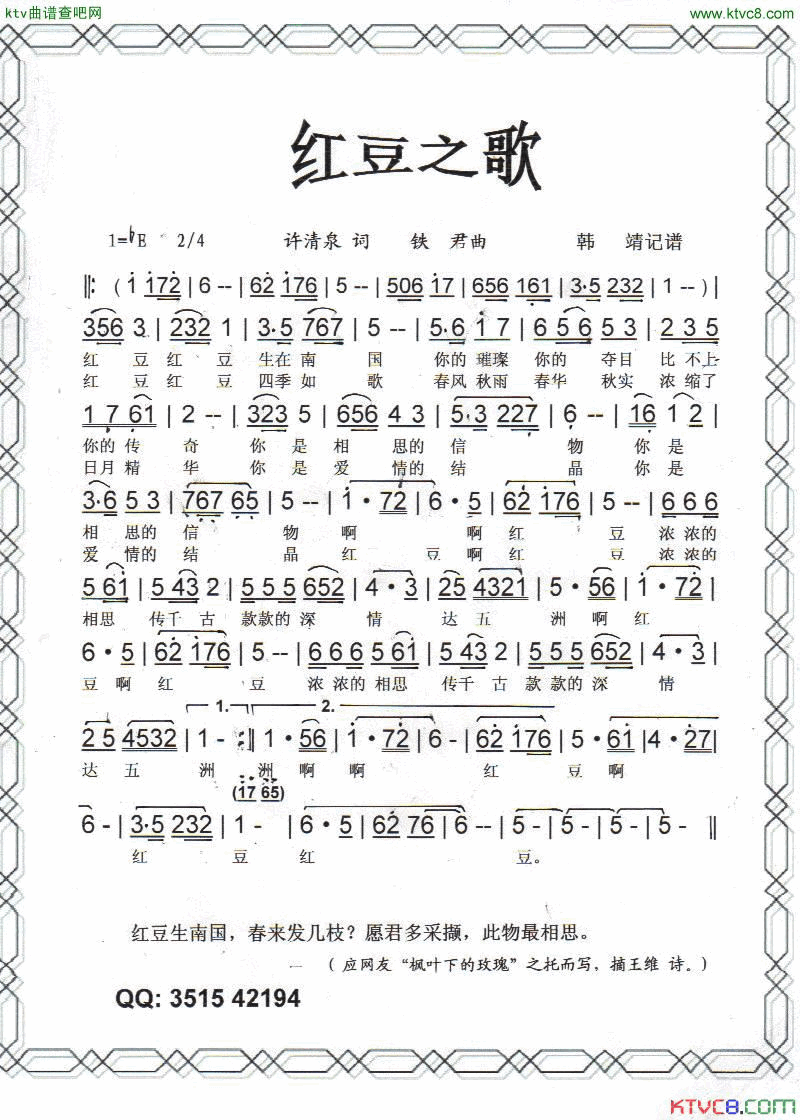 ktv曲谱查吧网
www.ktvc8.com
红豆之歌
1=♭E 2/4 许清泉 词 铁 君曲 韩 靖记谱
‖: ( i i72 | 6 -- | 62 i76 | 5 -- | 506 i7 | 656 161 | 3·5 232 | 1 -- ) |
356 3 | 232 1 | 3·5 767 | 5 -- | 5·6 i 7 | 6 5 6 5 3 | 2 3 5
红 豆 红 豆 生在 南 国 你的 璀璨 你的 夺目 比 不上
红 豆 红 豆 四季 如 歌 春风 秋雨 春华 秋实 浓 缩了
1 7 61 | 2 -- | 323 5 | 656 4 3 | 5·3 227 | 6 -- | 16 1 2 |
你的 传 奇 你 是 相 思的 信 物 你 是
日月 精 华 你 是 爱 情的 结 晶 你 是
3·6 5 3 | 767 65 | 5 -- | i · 72 | 6 -- | 62 i76 | 5 -- | 6 6 6
相 思的 信 物 啊 啊 红 豆 浓 浓的
爱 情的 结 晶 红 豆 啊 红 豆 浓 浓的
5 6i | 5 43 2 | 5 5 5 652 | 4 · 3 | 25 4321 | 5 · 56 | i · 72 |
相思 传千 古 款款的 深 情 达 五 洲 啊 红
6 · 5 | 62 i76 | 5 -- | 6 6 6 5 6i | 5 43 2 | 5 5 5 652 | 4 · 3 |
豆 啊 红 豆 浓 浓的 相思 传千 古 款 款的 深 情
1. 2.
2 5 4532 | 1 - :‖ 1 · 56 | i · 72 | 6 - | 62 i76 | 5 · 6i | 4 · 27 |
达 五 洲 洲 啊 啊 红 豆 啊
(17 65)
6 - | 3·5 232 | 1 - | 6 · 5 | 62 76 | 6 -- | 5 - | 5 - | 5 - ‖
红 豆 红 豆。
红豆生南国，春来发几枝？愿君多采撷，此物最相思。
— （ 应网友“枫叶下的玫瑰”之托而写，摘王维 诗。）
QQ: 3515 42194
KTVC8.COM